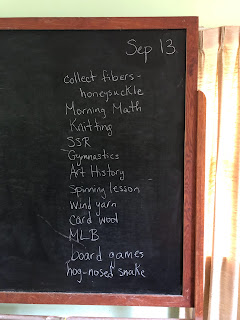 Sep 13
collect fibers -
honeysuckle
Morning Math
Knitting
SSR
Gymnastics
Art History
Spinning lesson
Wind yarn
Card wool
MLB
board games
hog-nosed snake